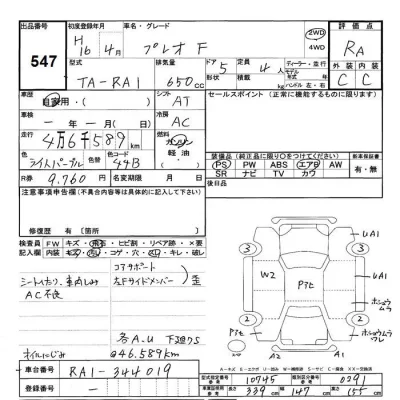 出品番号 547
初度登録年月 H16年4月
車名・グレード プレオ F
2WD 4WD
ドア 5 定員 4人
評価点 RA
型式 TA-RA1
排気量 650cc
形状
最大積載量 kg
ディーラー・並行
モデル年式
ハンドル・右
外装 内装
C C
車歴 自家用・( )
シフト AT
セールスポイント(正常に機能するものに限ります)
車検 ー年ー月(ー日)
冷房 AC
走行 4万6千589km
燃料 ガソリン 軽油・
色 ライトパープル 色替
色コード 44B
R券 9,760円
名変期限 月 日
装備品(純正品に限り○をつけてください)
PS PW ABS エアB AW
SR ナビ TV カワ
新車保証書 有・無
注意事項申告欄(不具合内容は具体的に記入して下さい)
後日品
修復歴 有( )箇所
検査員記入欄
FW キズ・飛石・ヒビ割・リペア跡・×要
内装 キズ・汚れ・コゲ・穴・スレ・キレ・破レ
シートよごれ、車内しみ
AC不良
コアサポート
左Fサイドメンバー
歪
各A-U 下廻りS
オイルにじみ
@46.589km
車台番号 RA1-344019
登録番号 ー
型式指定番号 10745
類別区分番号 0291
長さ 339cm 幅 147cm 高さ 155cm
UA1
3 3
W2
Pたて
UA1
ホショウムラ
2 2
Pたて
ホショウムラ
ワレ
A2 A1
A-キズ E-エクボ U-凹み W-補修跡 S-サビ C-腐食 X X-交換済